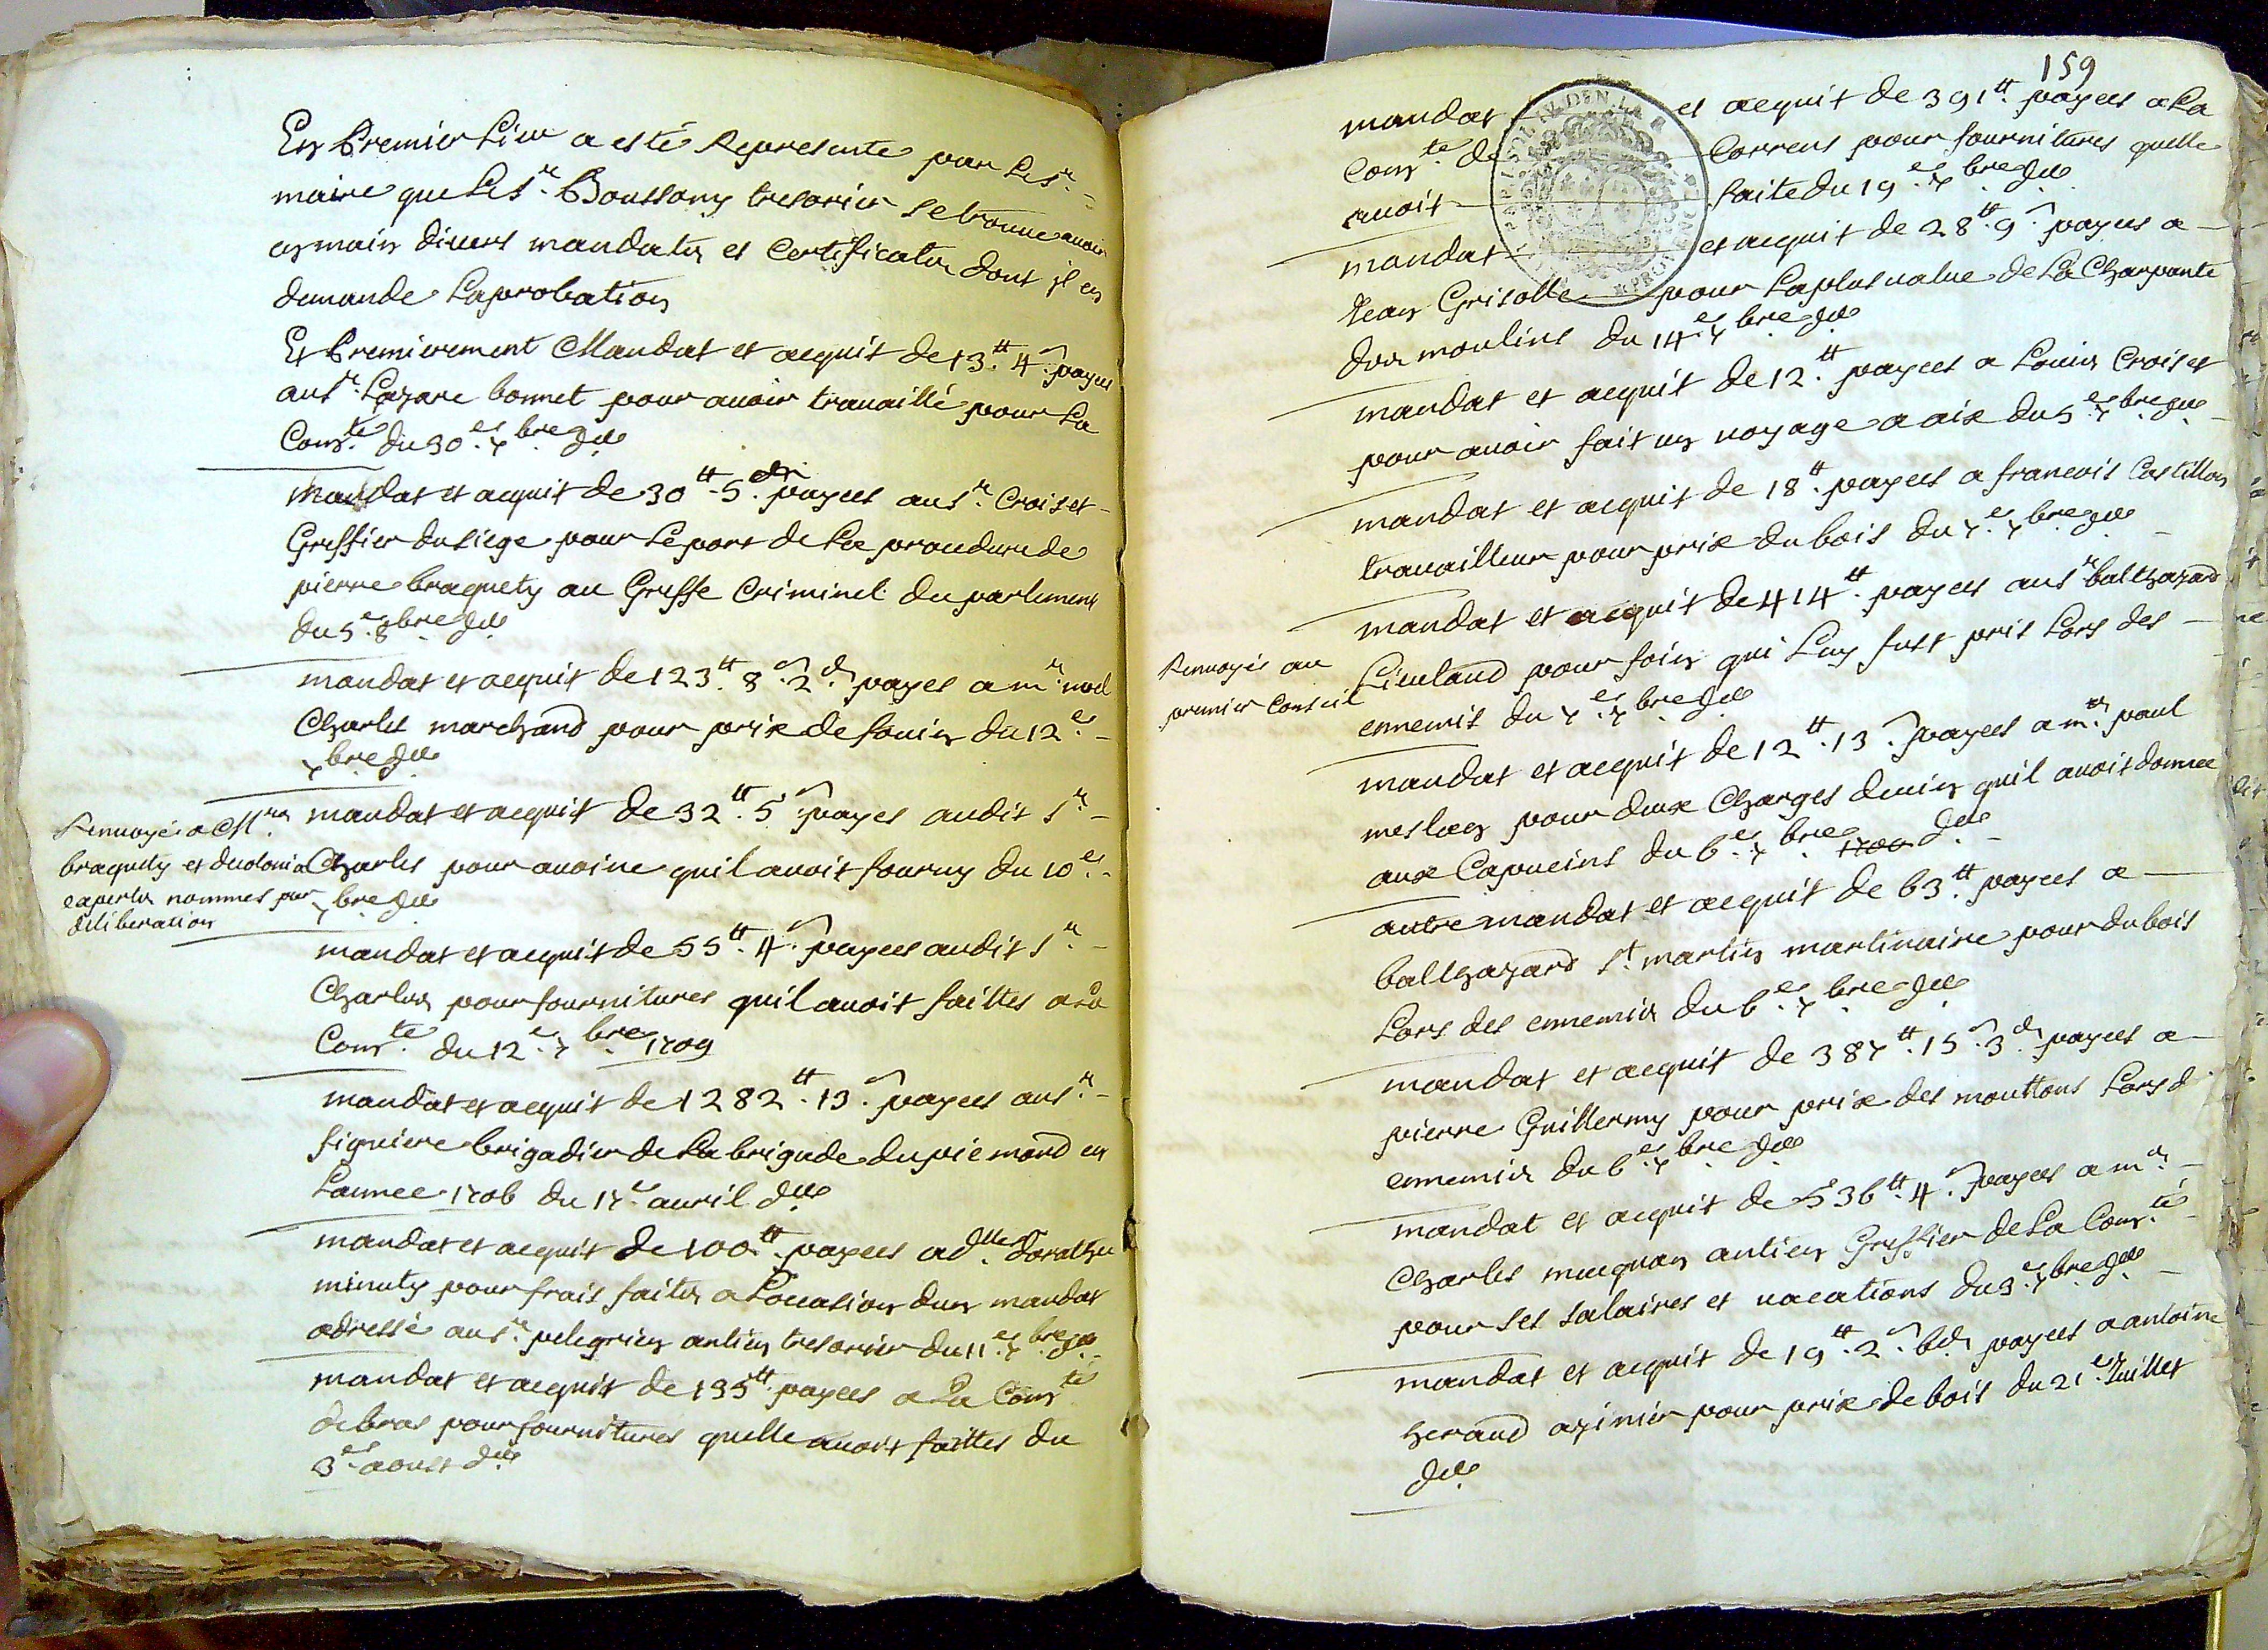 En Premier Lieu a esté Representé par Le Sr.
maire que Le Sr. Boussony tresorier se trouve avoir
en main divers mandats et Certificats dont il en
demande Laprobation
Et Premierement Mandat et acquit de 13tt. 4s. payes
au Sr. Lazare bonnet pour avoir travaillé pour La
Comte. du 30e. 7bre. dt.
mandat et acquit de 30tt. 5d. payees au Sr. Croiset
Greffier du siege pour Le port de La procedure de
pierre braquety au Greffe Criminel du parlement
du 5e. 8bre. dt.
mandat et acquit de 123tt. 8s. 2d. payes a mr. noel
Charles marchand pour prix de fouin du 12e.
7bre. dt.
mandat et acquit de 32tt. 5s. payes audit Sr.
Renvoyés a Mrs.
braquety et
experts nommes par
deliberation
Charles pour avoine quil avoit fourny du 10e.
7bre. dt.
mandat et acquit de 55tt. 4s. payees audit Sr.
Charles pour fournitures quil avoit faittes a La
Comte. du 12e. 7bre. 1709
mandat et acquit de 1282tt. 13s. payees au Sr.
figuiere brigadier de La brigade du piemond en
Lannee 1706 du 17e. avril dt.
mandat et acquit de 100tt. payees a dlle. Dorathée
minuty pour frais faits a Location dun mandat
adressé au Sr. pelegrin antien tresorier du 11e. 7bre. dt.
mandat et acquit de 195tt. payees a La Comte.
de bras pour fournitures quelle avoit faittes du
3e. aoust dt.
159
mandat et acquit de 391tt. payees a La
Comte. de Correns pour fournitures quelle
avoit faite du 19e. 7bre. dt.
mandat et acquit de 28tt. 9s. payees a
Jean Grisolle pour La plus value de La Charpante
des moulins du 14e. 7bre. dt.
mandat et acquit de 12tt. payees a Louis Croiset
pour avoir fait un voyage a aix du 5e. 7bre. dt.
mandat et acquit de 18tt. payees a francois Castillon
travailleur pour prix du bois du 7e. 7bre. dt.
mandat et acquit de 414tt. payees au Sr. balthazard
Renvoyés au
premier Conseil
Lieutaud pour foin qui Luy fust pris Lors des
ennemis du 7e. 7bre. dt.
mandat et acquit de 12tt. 13s. payees a me. paul
meslan pour deux Charges de vin quil avoit donnee
aux Capucins du 6e. 7bre. 1700 dt.
autre mandat et acquit de 63tt. payees a
balthazard St. martin martinaire pour du bois
Lors des ennemis du 6e. 7bre. dt.
mandat et acquit de 387tt. 15s. 3d. payees a
pierre Guillermy pour prix des mouttons Lors d
ennemis du 6e. 7bre. dt.
mandat et acquit de 536tt. 4s. payees a me.
Charles maquan antien Greffier de La Comte.
pour ses salaires et vacations du 3e. 7bre. dt.
mandat et acquit de 19tt. 2s. 6d. payees a antoine
heraud azinier pour prix de bois du 21e. Juillet
dt.